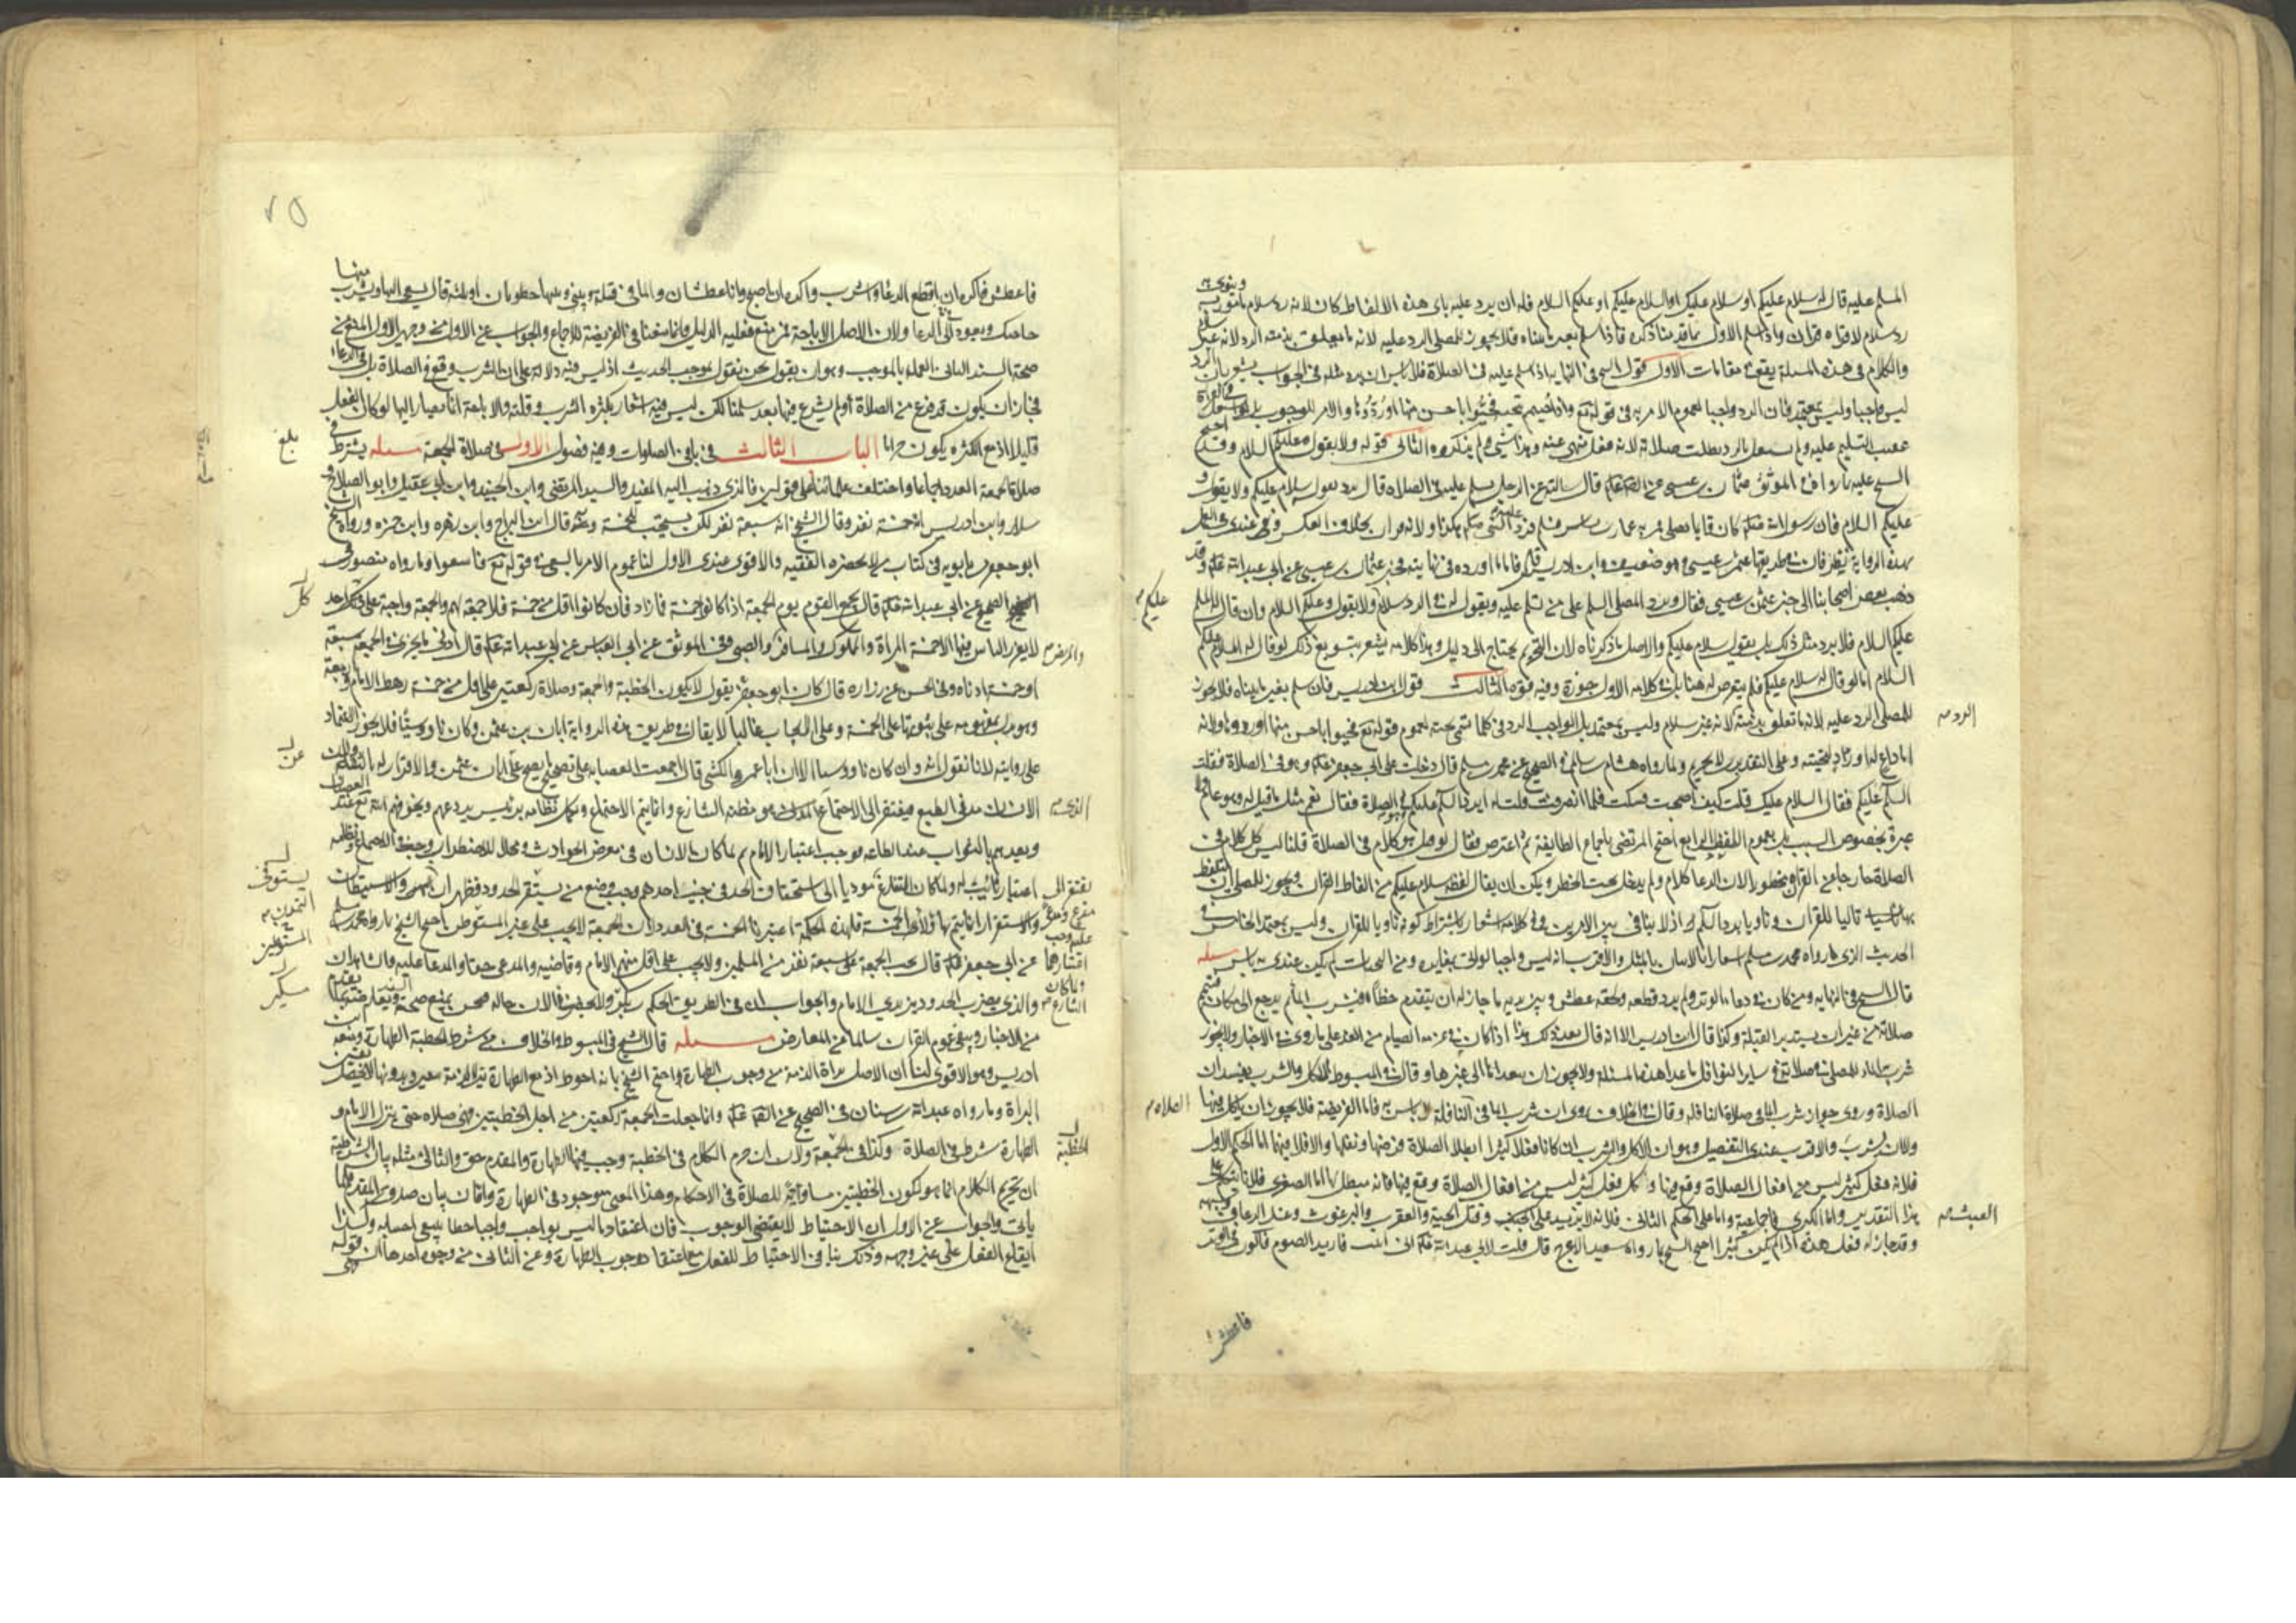 المسلم عليه قال له سلام عليكم او سلام عليك او السلام عليكم او عليكم السلام فله ان يرد عليه باى هذه الالفاظ كان لانه رد سلام مامور به وينوى به
رد سلام لا قراه قران واذا سلم الاول بما قد بينا ذكره فاذا سلم بغير ما بيناه فلا يجوز للمصلى الرد عليه لانه ما تعلق بذمته الرد لانه غير سلام
والكلام فى هذه المسئلة يقع فى مقامات الاول قول الشيخ فى النهاية اذا سلم عليه فى الصلاة فلا باس ان يرد مثله فى الجواب يشعر بان الرد
ليس واجبا وليس بمعتمد فان الرد واجب لعموم الامر به فى قوله تع واذا حييتم بتحية فحيوا باحسن منها او ردوها والامر للوجوب
عقيب التسليم عليه ولم يشتغل بالرد بطلت صلاته لانه فعل منهى عنه وهذا شىء لم يذكروه الثانى قوله ولا يقول وعليكم السلام وقد احتج
الشيخ عليه بما رواه فى الموثق عثمان بن عيسى عن الصادق قال سالته عن الرجل يسلم عليه فى الصلاه قال يرد يقول سلام عليكم ولا يقول و
عليكم السلام فان رسول الله كان قايما يصلى فمر به عمار بن ياسر فسلم فرد عليه النبى صلم هكذا ولانه قران بخلاف العكس وفى عندى فى العمل
بهذه الرواية نظر فان فى طريقها عثمن بن عيسى وهو ضعيف وابن ادريس قال فاما ما اورده فى نهايته فخبر عثمان بن عيسى عن ابى عبد الله وقد
ذهب بعض اصحابنا الى خبر عثمن بن عيسى فقال ويرد المصلى السلم على من سلم عليه ويقول له فى الرد سلام ولا يقول وعليكم السلام وان قال له المسلم
عليكم السلام فلا يرد مثل ذلك بل يقول سلام عليكم والاصل ما ذكرناه لان التحريم يحتاج الى دليل وهذا كلامه يشعر بتسويغ ذلك لو قال له السلام عليكم
السلام اما لو قال له سلام عليكم فلم يتعرض له هنا بل فى كلامه الاول جوزه وفيه قوه الثالث قول ابن ادريس فان سلم بغير ما بيناه فلا يجوز
للمصلى الرد عليه لانه ما تعلق بذمته لانه غير سلام وليس بمعتمد بل الواجب الرد فى كلما تسمى تحية لعموم قوله تع فحيوا باحسن منها او ردوها ولانه
اما داع له او راد لتحيته وعلى التقديرين لا تحريم ولما رواه هشام بن سالم فى الصحيح عن محمد بن مسلم قال دخلت على ابى جعفر وهو فى الصلاة فقلت
السلم عليكم فقال السلام عليك قلت كيف اصبحت فسكت فلما انصرف قلت له ايرد السلم وهو فى الصلاة فقال نعم مثل ما قيل له وهو عام ولا
عبرة بخصوص السبب بل بعموم اللفظ الرابع احتج المرتضى باجماع الطايفة ثم اعترض فقال لو قيل هو كلام فى الصلاة قلنا ليس كل كلام فى
الصلاة خارجا عن القران محظورا لان الدعا كلام ولم يدخل تحت الحظر ويمكن ان يقال لفظة سلام عليكم من الفاظ القران ويجوز للمصلى ان يتلفظ
بها تاليا للقران وناويا به رد السلم اذ لا تنافى بين الامرين وفى كلامه اشعار باشتراط كونه ناويا للقران وليس بمعتمد الخامس فى
الحديث الذى رواه محمد بن مسلم اشعار بالاتيان بالمثل والاقرب انه ليس واجبا لو اتى بمغايره ومن التحيات لم يكن عندى به باس مسئله
قال الشيخ فى النهايه ومن كان فى دعاء الوتر ولم يرد قطعه ولحقه عطش وبين يديه ما جاز له ان يتقدم خطا فيشرب الما ثم يرجع الى مكانه فيتم
صلاته من غير ان يستدبر القبلة وكذا قال ابن ادريس الا انه قال بعد ذلك هذا اذا كان فى عزمه الصيام من الغد على ما روى فى الاخبار ولا يجوز
شرب الماء للمصلى فى صلاته فى ساير النوافل ما عدا هذه المسئلة ولا يجوز ان يتعداها الى غيرها وقال فى المبسوط الاكل والشرب يفسدان
الصلاة وروى جواز شرب الما فى صلاة النافله وقال فى الخلاف روى ان شرب الما فى النافلة لا باس به فاما الفريضة فلا يجوز ان ياكل فيها
ولا ان يشرب والاقرب عندى التفصيل وهو ان الاكل والشرب ان كانا فعلا كثيرا ابطلا الصلاة فرضها ونفلها والا فلا فيهما اما الحكم الاول
فلانه فعل كثير ليس من افعال الصلاة وقع فيها وكل فعل كثير ليس من افعال الصلاة وقع فيها فانه مبطل لها اما الصغرى فلانا نتكلم على
هذا التقدير واما الكبرى فاجماعية واما على الحكم الثانى فلانه لا يزيد على وقتل الحية والعقرب والبرغوث وغسل الرعاف
وقد جاز له فعل هذه اذا لم يكن كثيرا احتج الشيخ بما رواه سعيد الاعرج قال قلت لابى عبد الله انى ابيت فاريد الصوم فاكون فى الوتر
عليكم
الرد
الصلاه
العبث
فاعطش
٧٥
فاعطش فاكره ان اقطع الدعا واشرب واكره ان اصبح وانا عطشان والما فى قلة بينى وبينها خطوتان او ثلثة قال تسعى اليها وتشرب منها
حاجتك وتعود الى الدعا ولان الاصل الاباحة فمن منع فعليه الدليل وانما منعنا فى الفريضة للاجماع والجواب عن الاول من وجهين الاول المنع من
صحة السند الثانى العمل بالموجب وهو ان يقول نحن نقول بموجب الحديث اذ ليس فيه دلالة على ان الشرب وقع فى الصلاة بل فى الدعا
فجاز ان يكون قد فرغ من الصلاة او لم يشرع فيها بعد سلمنا لكن ليس فيه اشعار بكثره الشرب وقلته والاباحة انما يصار اليها لو كان الفعل
قليلا اذ مع الكثره يكون حراما الباب الثالث فى باقى الصلوات وفيه فصول الاول فى صلاة الجمعة مسئله يشترط فى
صلاة الجمعة العدد اجماعا واختلف علمائنا على قولين فالذى ذهب اليه المفيد والسيد المرتضى وابن الجنيد وابن ابى عقيل وابو الصلاح و
سلار وابن ادريس انه خمسة نفر وقال الشيخ انه سبعة نفر لكن يستحب للخمسة وبه قال ابن البراج وابن زهره وابن حمزه ورواه الشيخ
ابو جعفر بن بابويه فى كتاب من لا يحضره الفقيه والاقوى عندى الاول لنا عموم الامر بالسعى فى قوله تع فاسعوا وما رواه منصور فى
الصحيح عن ابى عبد الله قال يجمع القوم يوم الجمعة اذا كانوا خمسة فما زاد فان كانوا اقل من خمسة فلا جمعة لهم والجمعة واجبة على كل احد
لا يعذر الناس فيها الا خمسة المراة والمملوك والمسافر والصبى وفى الموثق عن ابى العباس عن ابى عبد الله قال ادنى ما يجزى فى الجمعة سبعة
او خمسة ادناه وفى الحسن عن زراره قال كان ابو جعفر يقول لا يكون الخطبة والجمعة وصلاة ركعتين على اقل من خمسة رهط الامام واربعة
وهو يدل بمفهومه على ثبوتها على الخمسة وعلى الايجاب غالبا لا يقال فى طريق هذه الرواية ابان بن عثمن وكان ناووسيا فلا يجوز الاعتماد
على روايته لانا نقول انه وان كان ناووسيا الا ان ابا عمرو الكشى قال اجمعت العصابه على تصحيح ما يصح عن ابان بن عثمن والاقرار له بالفقه
الانسان مدنى بالطبع فيفتقر الى الاجتماع هو مظنة التنازع وانما يتم الاجتماع ويكمل نظامه برئيس يردعهم ويخوفهم الله تع عند
ويعدهم بالثواب عند الطاعه فوجب اعتبار الامام ثم لما كان الانسان فى معرض الحوادث ومحلا للاضطراب وجب
اعتبار نائب له ولما كان التنازع موديا الى استحقاق الحد فى جنب احدهم وجب وضع من يستوفى الحدود فظهر ان والاستيطان
والاستقرار انما يتم بهاولاء الخمسة فلهذه الحكمة اعتبرنا الخمسة فى العدد لان الجمعة لا يجب على غير المستوطن احتج الشيخ بما رواه محمد بن مسلم
عن ابى جعفر قال يجب الجمعة على سبعة نفر من المسلمين ولا يجب على اقل منهم الامام وقاضيه والمدعى حقا والمدعا عليه والشاهدان
والذى يضرب الحدود بين يدى الامام والجواب ان فى الطريق الحكم بن مسكين ولا يحضرنى الان حاله فنحن نمنع صحة السند ونعارضه بما تقدم
من الاخبار ويبقى عموم القران سالما عن المعارض مسئله قال الشيخ فى المبسوط والخلاف من شرط الخطبة الطهارة ومنعه ابن
ادريس وهو الاقوى لنا ان الاصل براة الذمه من وجوب الطهارة واحتج الشيخ بانه احوط اذ مع الطهارة تبرا الذمة بيقين وبدونها لا يحصل يقين
البراة وما رواه عبد الله بن سنان فى الصحيح عن الصادق وانما جعلت الجمعة ركعتين من اجل الخطبتين فهى صلاه حتى ينزل الامام و
الطهارة شرط فى الصلاة وكذا فى الجمعة ولان ان حرم الكلام فى الخطبة وجب فيها الطهارة والمقدم حق والتالى مثله بيان الشرطية
ان تحريم الكلام انما هو لكون الخطبتين مساوية للصلاة فى الاحكام وهذا المعنى موجود فى الطهارة واما بيان صدق المقدم فلما
ياتى والجواب عن الاول ان الاحتياط لا يقتضى الوجوب فان اعتقاد ما ليس بواجب واجبا خطا ولذا
ايقاع الفعل على غير وجهه وذلك ينافى الاحتياط للفعل مع اعتقاد وجوب الطهارة وعن الثانى من وجوه احدها ان قوله فهى
بلغ
كل
والمريض
عن
الذى
يستوفى
التمدن
المستوطن
مسكين
الخطبة